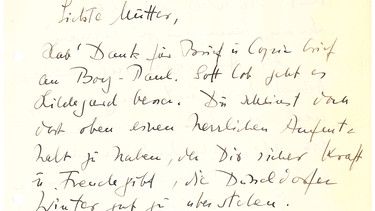 Liebste Mutter,
Hab' Dank für Brief u Copie brief
an Boy-Paul. Gott lob geht es
Hildegard besser. Du scheinst doch
dort oben einen herrlichen Aufent-
halt zu haben, der Dir sicher Kraft
u Freude gibt, die Düsseldorfer
Winter gut zu überstehen.